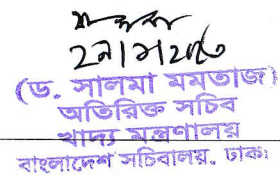 (ড. সালমা মমতাজ)
অতিরিক্ত সচিব
খাদ্য মন্ত্রণালয়
বাংলাদেশ সচিবালয়, ঢাকা